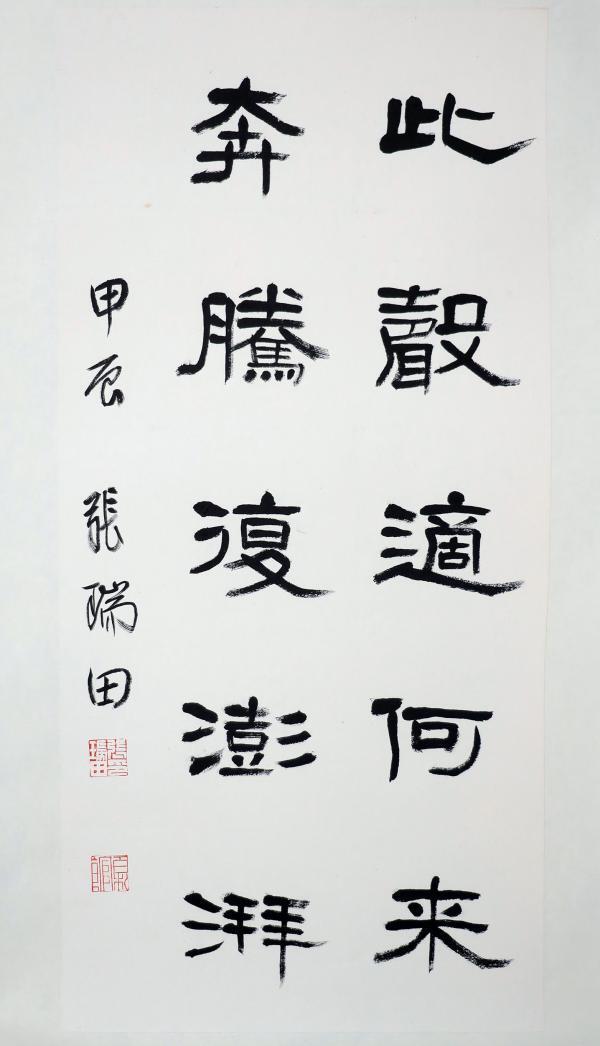 此聲適何来
奔騰復澎湃
甲辰 張瑞田